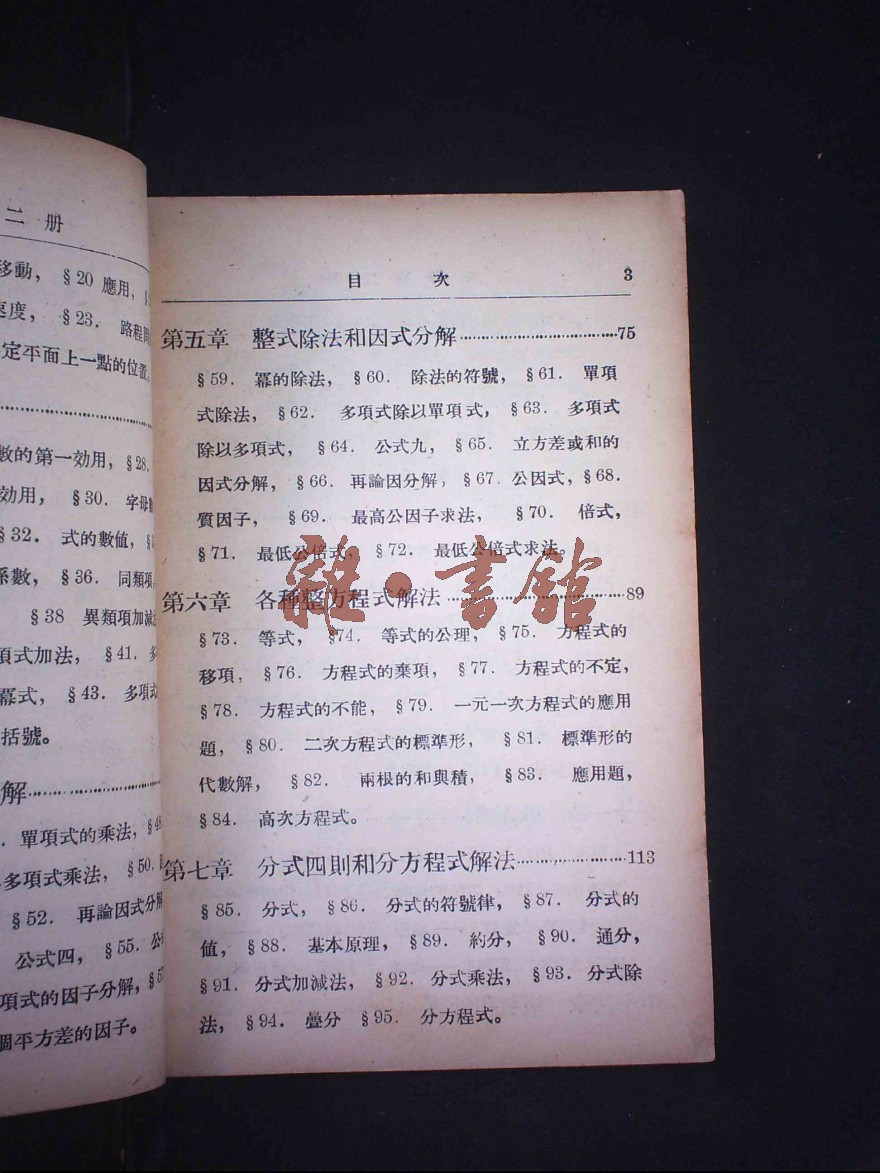 二册
移動， §20 應用，
速度， §23． 路程問
定平面上一點的位置
數的第一効用，§28．
効用， §30． 字母
§32． 式的數値，
系數， §36． 同類項，
§38 異類項加減
項式加法， §41．
冪式， §43． 多項式
括號。
解
． 單項式的乘法，
多項式乘法， §50．
§52． 再論因式分解
公式四， §55． 公
項式的因子分解，
個平方差的因子。
目次 3
第五章 整式除法和因式分解··················75
§59． 冪的除法， §60． 除法的符號， §61． 單項
式除法， §62． 多項式除以單項式， §63． 多項式
除以多項式， §64． 公式九， §65． 立方差或和的
因式分解， §66．再論因分解， §67．公因式，§68．
質因子， §69． 最高公因子求法， §70． 倍式，
§71． 最低公倍式， §72． 最低公倍式求法。
雜·書館
第六章 各種整方程式解法··················89
§73． 等式， §74． 等式的公理， §75． 方程式的
移項， §76． 方程式的棄項， §77． 方程式的不定，
§78． 方程式的不能， §79． 一元一次方程式的應用
題， §80． 二次方程式的標準形， §81． 標準形的
代數解， §82． 兩根的和與積， §83． 應用題，
§84． 高次方程式。
第七章 分式四則和分方程式解法············113
§85． 分式， §86． 分式的符號律， §87． 分式的
値， §88． 基本原理， §89． 約分， §90． 通分，
§91． 分式加減法， §92． 分式乘法， §93． 分式除
法， §94． 疊分 §95． 分方程式。